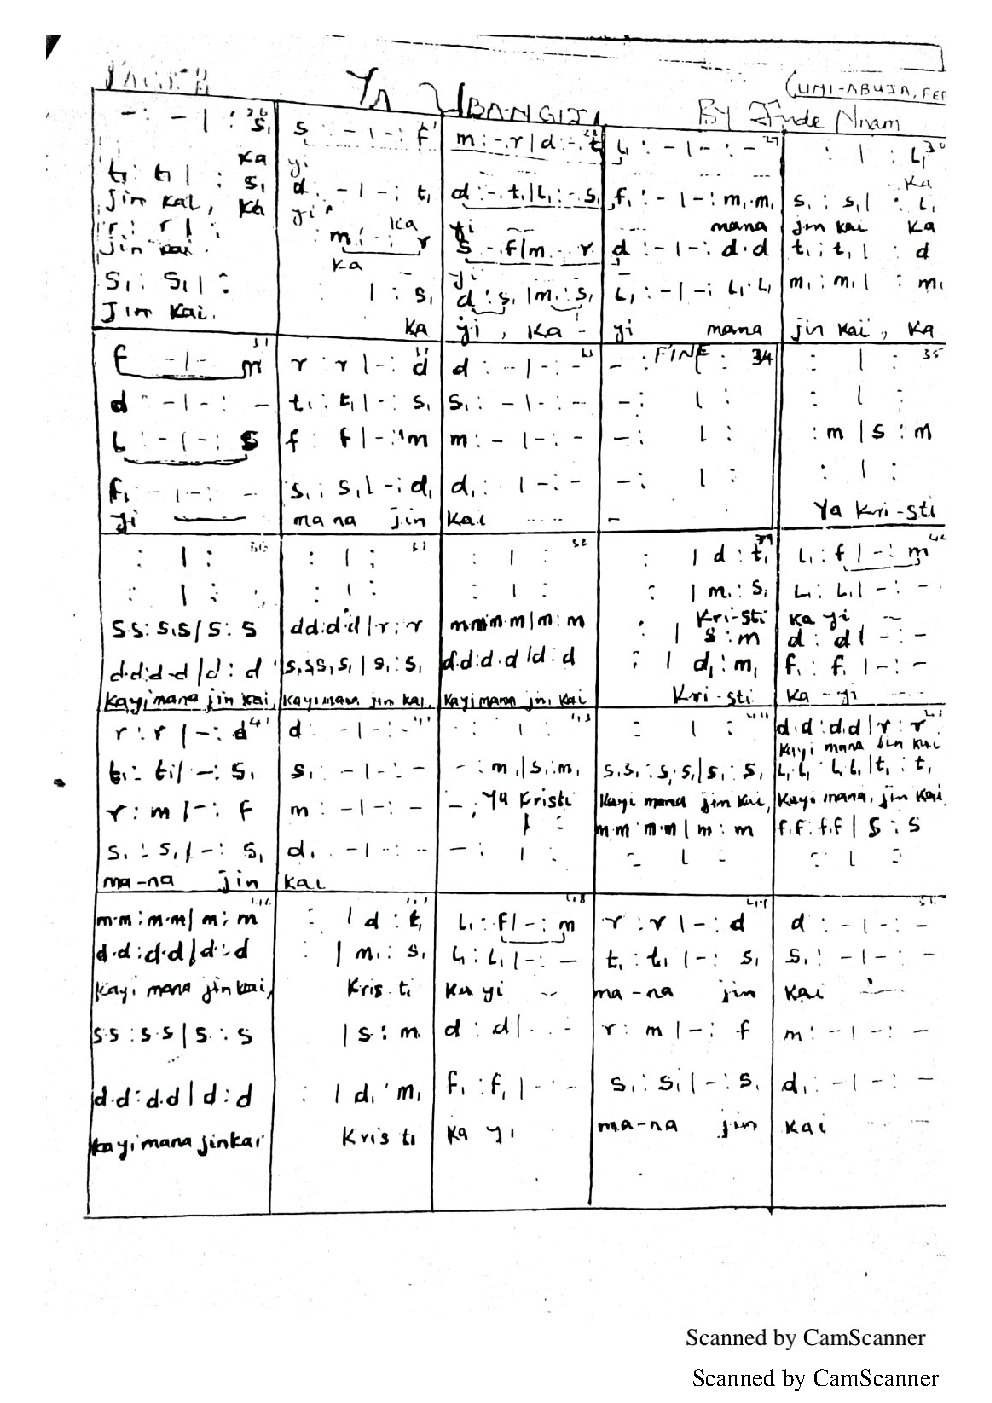 Ya Ubangiji
By Jude Nnam
- : - | : s₁
Ka
t₁ : t₁ | : s₁
jin kai, Ka
r : r | :
jin kai.
s₁ : s₁ | :
Jin kai.
s : - | - : f
yi
d : - | - : t₁
yi Ka
m : - r
Ka
| : s₁
Ka
m : - r | d : - t₁
d : - t₁ | L₁ : - s₁
yi
s - f | m - r
yi
d : s₁ | m₁ : s₁
yi, Ka -
L₁ : - | - : -
f₁ : - | - : m₁.m₁
mana
d : - | - : d.d
L₁ : - | - : L₁.L₁
yi mana
: | : L₁
Ka
s₁ : s₁ | : L₁
jin kai Ka
t₁ : t₁ | : d
m₁ : m₁ | : m₁
jin kai, Ka
f - | - m
d - | - : -
L : - | - : s
f₁ : - | - : -
yi
r : r | - : d
t₁ : t₁ | - : s₁
f : f | - : m
s₁ : s₁ | - : d₁
mana jin
33
d : - | - : -
s₁ : - | - : -
m : - | - : -
d₁ : | - : -
kai
FINE 34
- : | :
- : | :
- : | :
- : | :
35
: | :
: | :
: m | s : m
: | :
Ya Kri-sti
: | :
: | :
s s : s.s | s : s
d.d : d.d | d : d
Kayi mana jin kai
: | :
: | :
d d : d.d | r : r
s₁.s₁ s₁ s₁ | s₁ : s₁
Kayi mana jin kai,
: | :
: | :
m m m.m | m : m
d.d.d.d | d : d
Kayi mana jin kai
39
: | d : t₁
: | m₁ : s₁
Kri-sti
: | s : m
: | d₁ : m₁
Kri-sti
L₁ : f | - : m
L₁ : L₁ | - : -
Ka yi
d : d | - : -
f₁ : f₁ | - : -
Ka - yi
r : r | - : d
t₁ : t₁ | - : s₁
r : m | - : f
s₁ : s₁ | - : s₁
ma-na jin
d : - | - : -
s₁ : - | - : -
m : - | - : -
d₁ : - | - : -
kai
: | :
- : m₁ | s₁ : m₁
- ; Ya Kristi
| :
- : | :
: | :
s₁.s₁ : s₁.s₁ | s₁ : s₁
Kayi mana jin kai,
m.m : m.m | m : m
: | :
d.d : d.d | r : r
Kayi mana jin kai
L₁.L₁ : L₁.L₁ | t₁ : t₁
Kayi mana, jin kai
f.f : f.f | s : s
: | :
m.m : m.m | m : m
d.d : d.d | d : d
Kayi mana jin kai,
s.s : s.s | s : s
d.d : d.d | d : d
Kayi mana jin kai
: | d : t₁
: | m₁ : s₁
Kris ti
| s : m
: | d₁ : m₁
Kris ti
48
L₁ : f | - : m
L₁ : L₁ | - : -
Ka yi
d : d | - -
f₁ : f₁ | - -
Ka yi
49
r : r | - : d
t₁ : t₁ | - : s₁
ma-na jin
r : m | - : f
s₁ : s₁ | - : s₁
ma-na jin
d : - | - : -
s₁ : - | - : -
kai
m : - | - : -
d₁ : - | - : -
kai
Scanned by CamScanner
Scanned by CamScanner